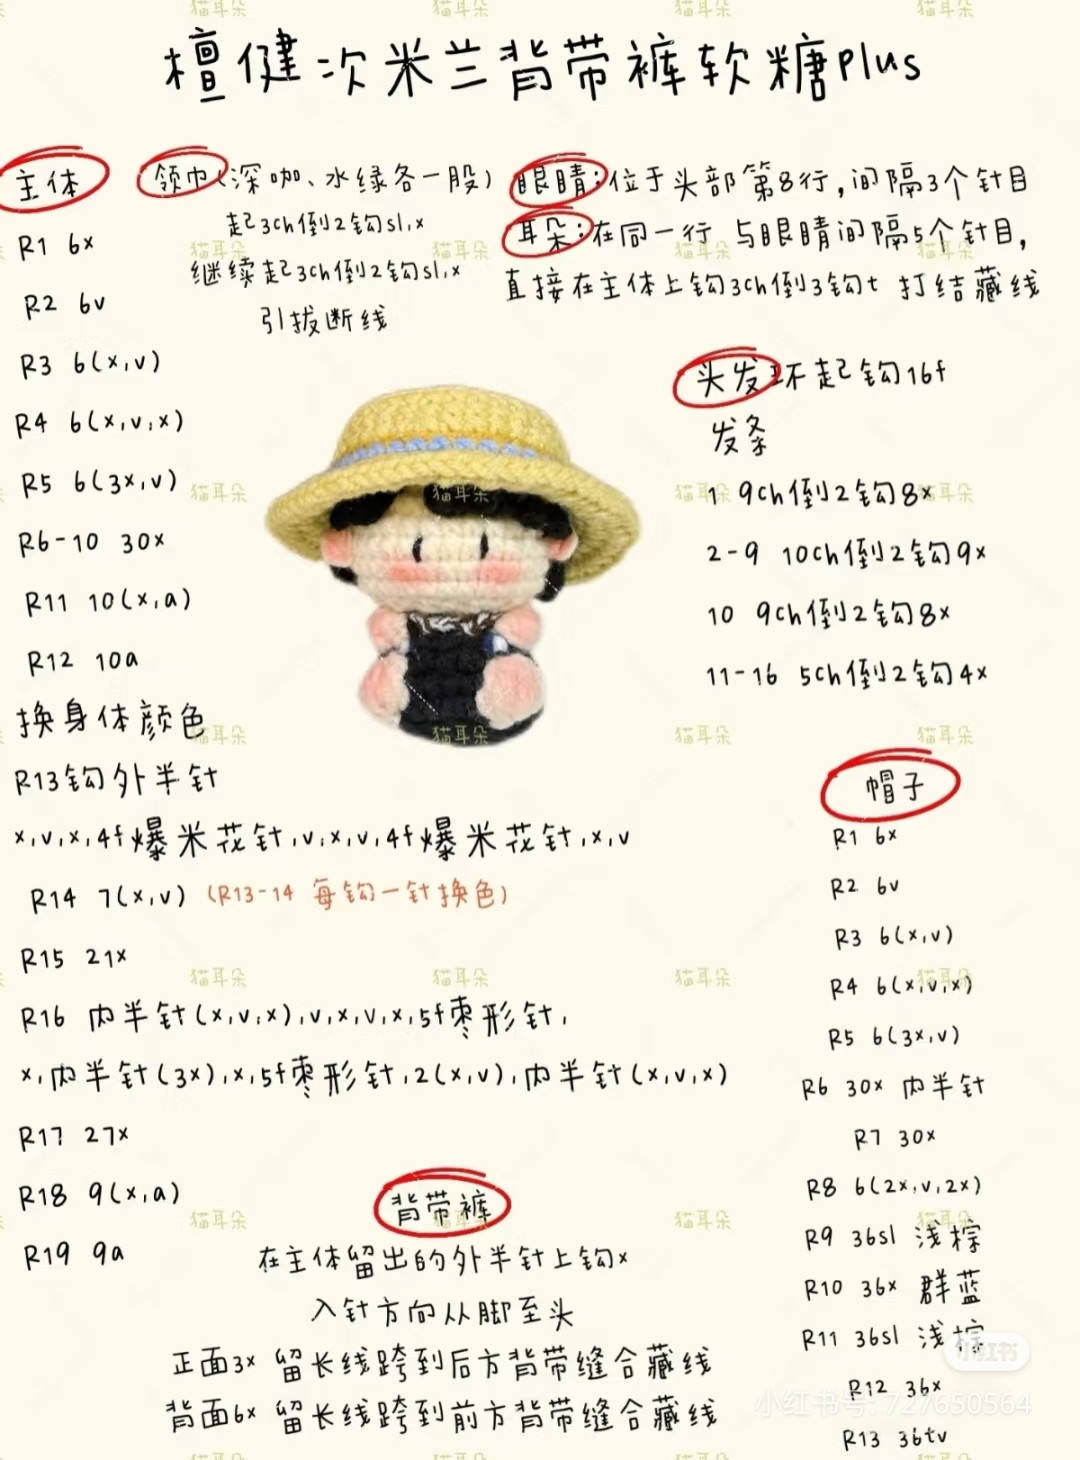 檀健次米兰背带裤软糖plus
主体
R1 6x
R2 6v
R3 6(x,v)
R4 6(x,v,x)
R5 6(3x,v)
R6-10 30x
R11 10(x,a)
R12 10a
换身体颜色
R13钩外半针
x,v,x,4f爆米花针,v,x,v,4f爆米花针,x,v
R14 7(x,v) (R13-14 每钩一针换色)
R15 21x
R16 内半针(x,v,x),v,x,v,x,5f枣形针,
x,内半针(3x),x,5f枣形针,2(x,v),内半针(x,v,x)
R17 27x
R18 9(x,a)
R19 9a
领巾(深咖、水绿各一股)
起3ch倒2钩sl,x
继续起3ch倒2钩sl,x
引拔断线
眼睛:位于头部第8行,间隔3个针目
耳朵:在同一行 与眼睛间隔5个针目,
直接在主体上钩3ch倒3钩t 打结藏线
头发环起钩16f
发条
1 9ch倒2钩8x
2-9 10ch倒2钩9x
10 9ch倒2钩8x
11-16 5ch倒2钩4x
帽子
R1 6x
R2 6v
R3 6(x,v)
R4 6(x,v,x)
R5 6(3x,v)
R6 30x 内半针
R7 30x
R8 6(2x,v,2x)
R9 36sl 浅棕
R10 36x 群蓝
R11 36sl 浅棕
R12 36x
R13 36tv
背带裤
在主体留出的外半针上钩x
入针方向从脚至头
正面3x 留长线跨到后方背带缝合藏线
背面6x 留长线跨到前方背带缝合藏线
猫耳朵
小红书
小红书号: 727650564